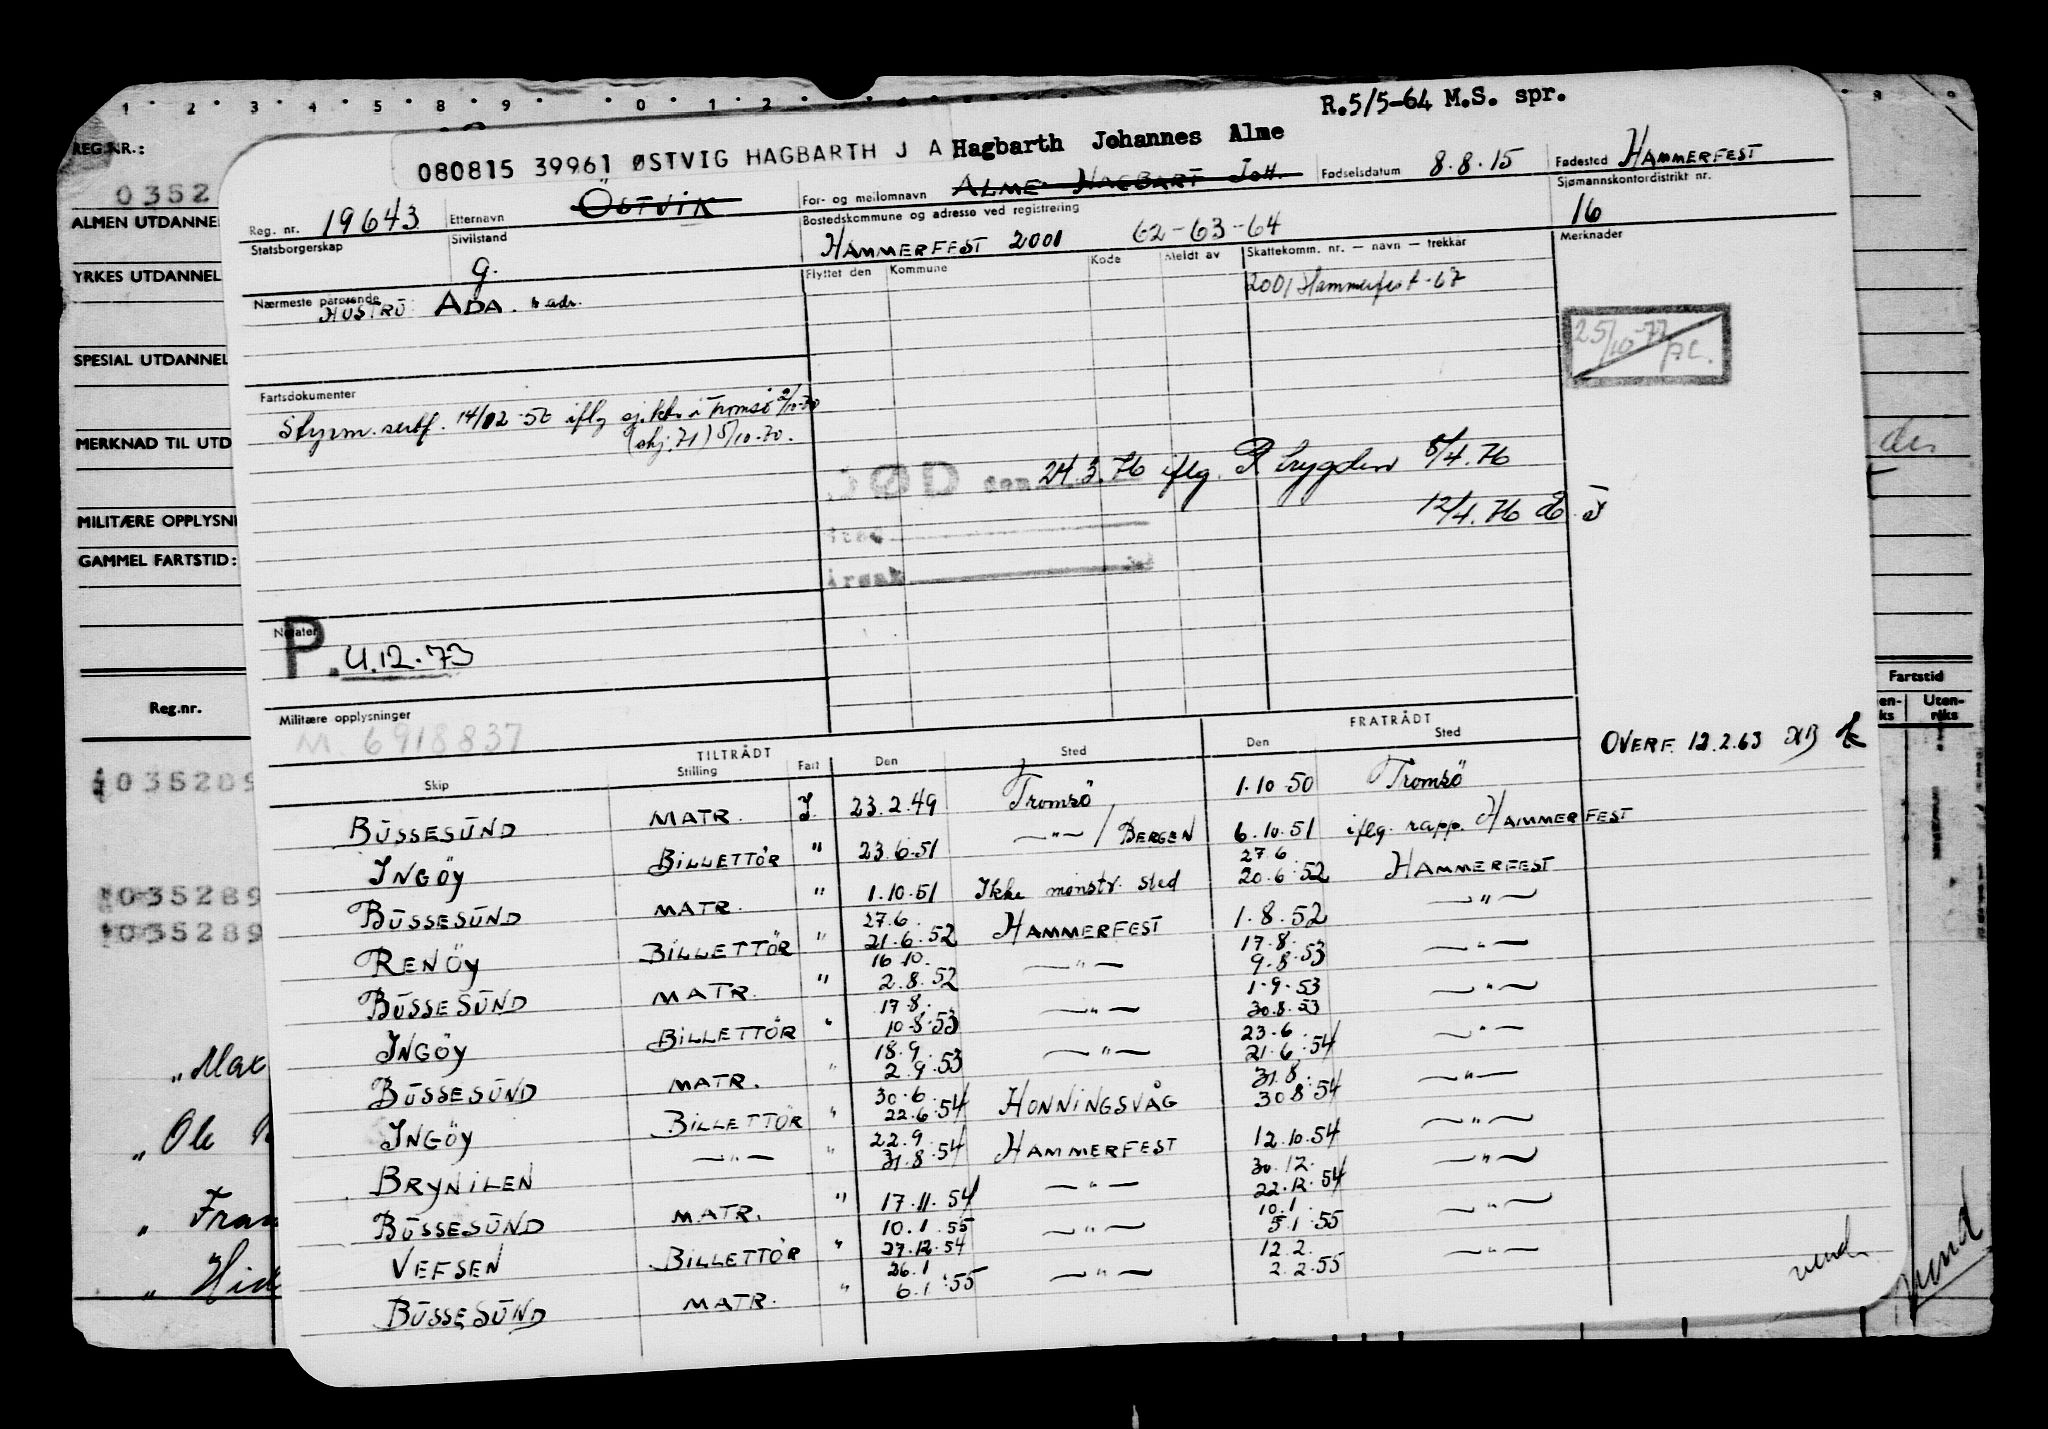 1 · 2 · 3 · 4 · 5 · 8 · 9 · · 0 · 1 · 2
R.5/5-64 M.S. spr.
080815 39961 ØSTVIG HAGBARTH J A Hagbarth Johannes Alme
REG.NR.:
0352
ALMEN UTDANNEL
YRKES UTDANNEL
SPESIAL UTDANNEL
MERKNAD TIL UTD
MILITÆRE OPPLYSNI
GAMMEL FARTSTID:
Reg.nr.
035209
035289
035289
"Max
"Ole
" Fran
" Hid
Reg. nr. 19643 Etternavn ÖSTVIK For- og mellomnavn ALME HAGBART JOH. Fødselsdatum 8.8.15 Fødested HAMMERFEST
Statsborgerskap Sivilstand g. Bostedskommune og adresse ved registrering HAMMERFEST 2001 62-63-64 Sjømannskontordistrikt nr. 16
Flyttet den Kommune Kode Meldt av Skattekomm. nr. — navn — trekkår Merknader
Nærmeste pårørende HUSTRU ADA. s. adr. 2001 Hammerfest - 67
25/10-77 p.c.
Fartsdokumenter
Styrm. sertf. 14/02 50 iflg sj.ktr i Tromsö 2/10-70
(skj. 71) 5/10-70.
DØD den 24.3.76 iflg. R trygden 5/4.76
12/4.76
Årsak
Notater
P. 4.12.73
Militære opplysninger
M. 6918837
OVERF. 12.2.63
TILTRÅDT FRATRÅDT
Skip Stilling Fart Den Sted Den Sted
BUSSESUND MATR. I. 23.2.49 Tromsö 1.10.50 Tromsö
INGÖY BILLETTÖR " 23.6.51 —"— / BERGEN 6.10.51 iflg. rapp. HAMMERFEST
BUSSESUND MATR. " 1.10.51 Ikke mönstr. sted 27.6 20.6.52 HAMMERFEST
RENÖY BILLETTÖR " 27.6. 21.6.52 HAMMERFEST 1.8.52 —"—
BUSSESUND MATR. " 16.10. 2.8.52 —"— 17.8. 9.8.53 —"—
INGÖY BILLETTÖR " 17.8. 10.8.53 —"— 1.9.53 30.8.53 —"—
BUSSESUND MATR. " 18.9. 2.9.53 —"— 23.6. 21.6.54 —"—
INGÖY BILLETTÖR " 30.6. 22.6.54 HONNINGSVÅG 31.8. 30.8.54 —"—
BRYNILEN —"— " 22.9 31.8.54 HAMMERFEST 12.10.54 —"—
BUSSESUND MATR. " 17.11.54 —"— 30.12. 22.12.54 —"—
VEFSEN BILLETTÖR " 10.1.55 27.12.54 —"— 10.1. 5.1.55 —"—
BUSSESUND MATR. " 26.1 6.1.55 —"— 12.2. 2.2.55 —"—
vend
Fartstid
Uten-riks
vend